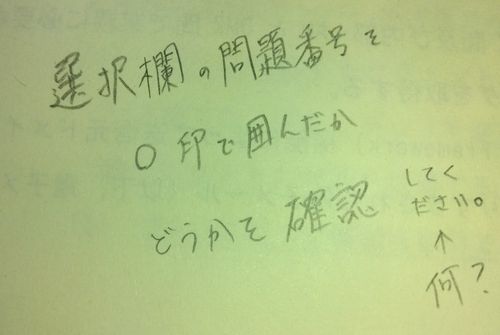 選択欄の問題番号を
○印で囲んだか
どうかを確認してください。
↑
何?